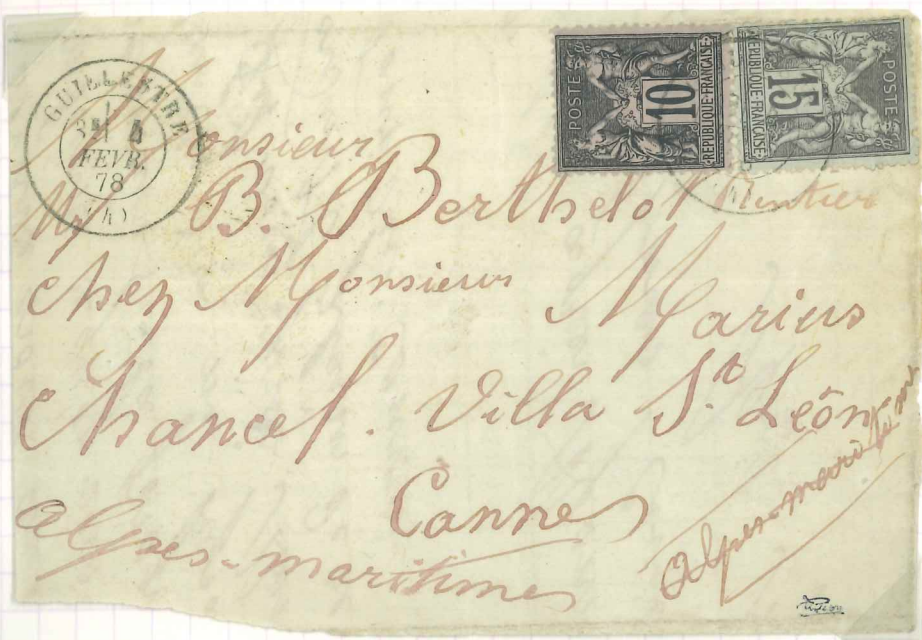 GUILLESTRE
4
FEVR.
78
(4)
POSTE
10
REPUBLIQUE FRANÇAISE
POSTE
15
REPUBLIQUE FRANÇAISE
Monsieur
B. Berthelot Rentier
chez Monsieur Marius
Chancel. Villa St. Léon
Cannes
alpes-maritime
Alpes-maritime